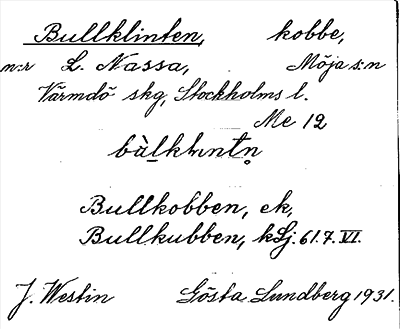 Bullklinten, kobbe,
n:r L. Nassa, Möja s:n
Värmdö skg, Stockholms l.
Me 12
Bullkobben, ek,
Bullkubben, kLj. 61.7. VI.
J. Westin Gösta Lundberg 1931.